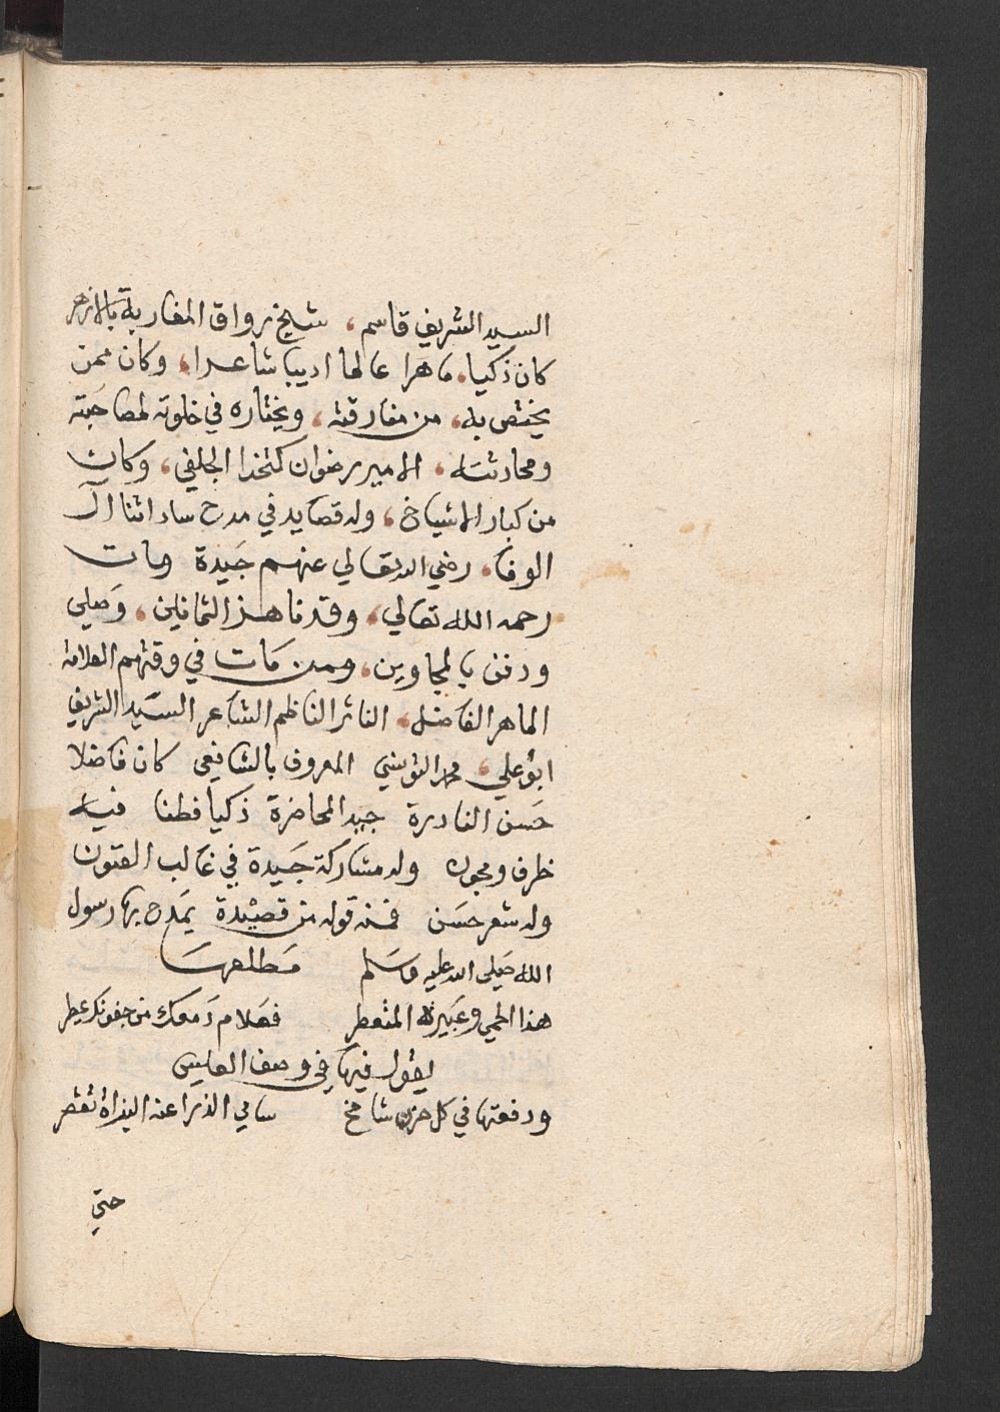 السيد الشريف قاسم، شيخ رواق المغاربة بالازهر
كان ذكيا. ماهرا عالما اديبا شاعرا، وكان ممن
يختص به، من مفارقته، ويختاره في خلوته لمصاحبته
ومحادثته، الامير رضوان كتخدا الجلفي، وكان
من كبار المشياخ، وله قصايد في مدح ساداتنا ال
الوفا، رضي الله تعالي عنهم جيدة ومات
رحمه الله تعالي، وقد ناهز الثمانين، وصلي
ودفن بالمجاورين، وممن مات في وقتهم العلامة
الماهر الفاضل، الناثر الناظم الشاعر السيد الشريف
ابو علي، محمد التونسي المعروف بالشافعي كان فاضلا
حسن النادرة جيد المحاضرة ذكيا فطنا فيه
ظرف ومجون وله مشاركة جيدة في غالب الفنون
وله شعر حسن فمنه قوله من قصيدة يمدح بها رسول
الله صلي الله عليه وسلم مطلعها
هذا الحمي وعبيره المتعطر فعلام دمعك من جفونك يمطر
يقول فيها في وصف العيس
ودفعتها في كل حزن شامخ سامي الذرا عنه البزاة تقصر
حتي